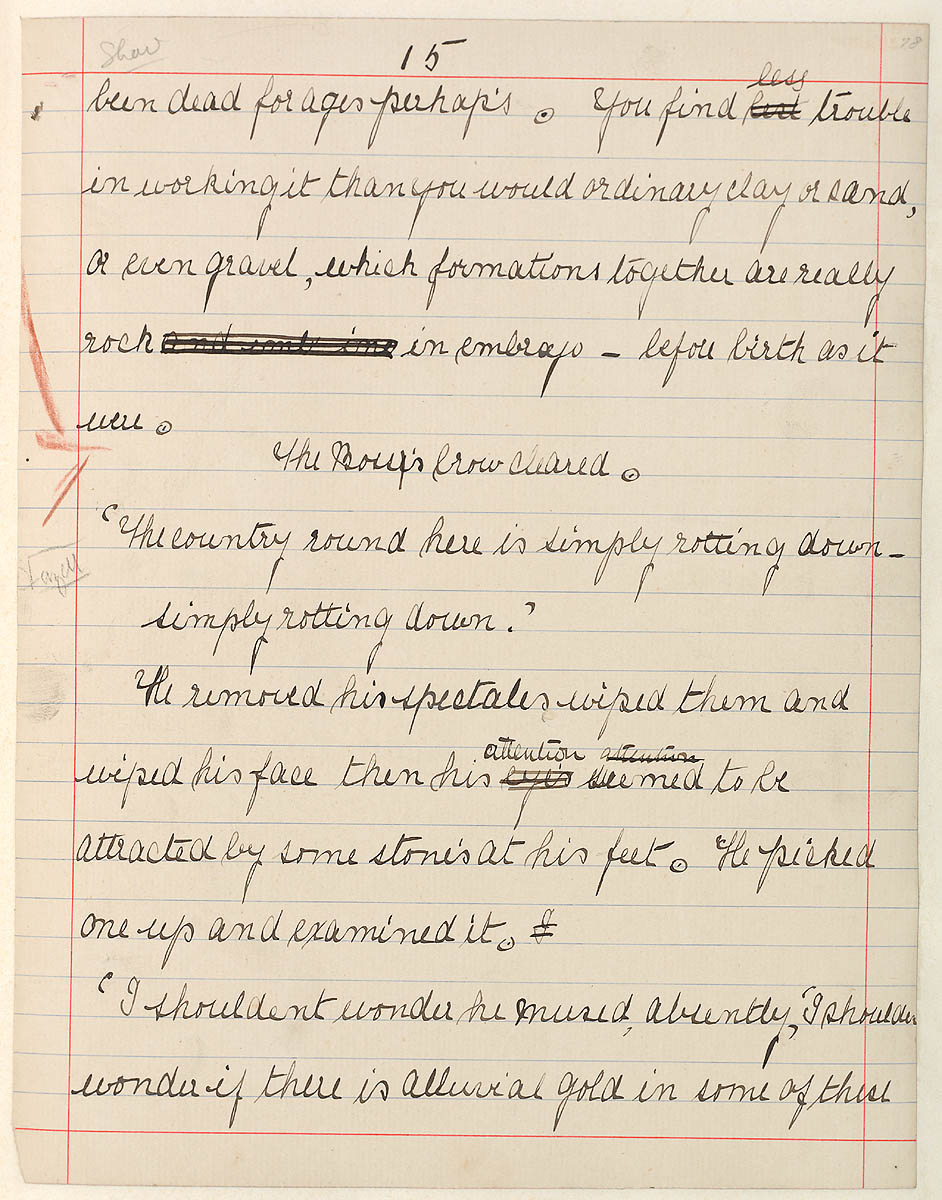 Shaw
15
78
been dead for ages perhap's. You find less lest trouble
in working it than you would ordinary clay or sand,
or even gravel, which formations together are really
rock in embrayo – before birth as it
were.
The Boss's brow cleared.
'The country round here is simply rotting down –
simply rotting down.'
He removed his spectales wiped them and
attention attention
wiped his face then his eye's seemed to be
attracted by some stone's at his feet. He picked
one up and examined it. I
'I shouldent wonder he mused, absently, 'I shoulden
wonder if there is alluvial gold in some of these